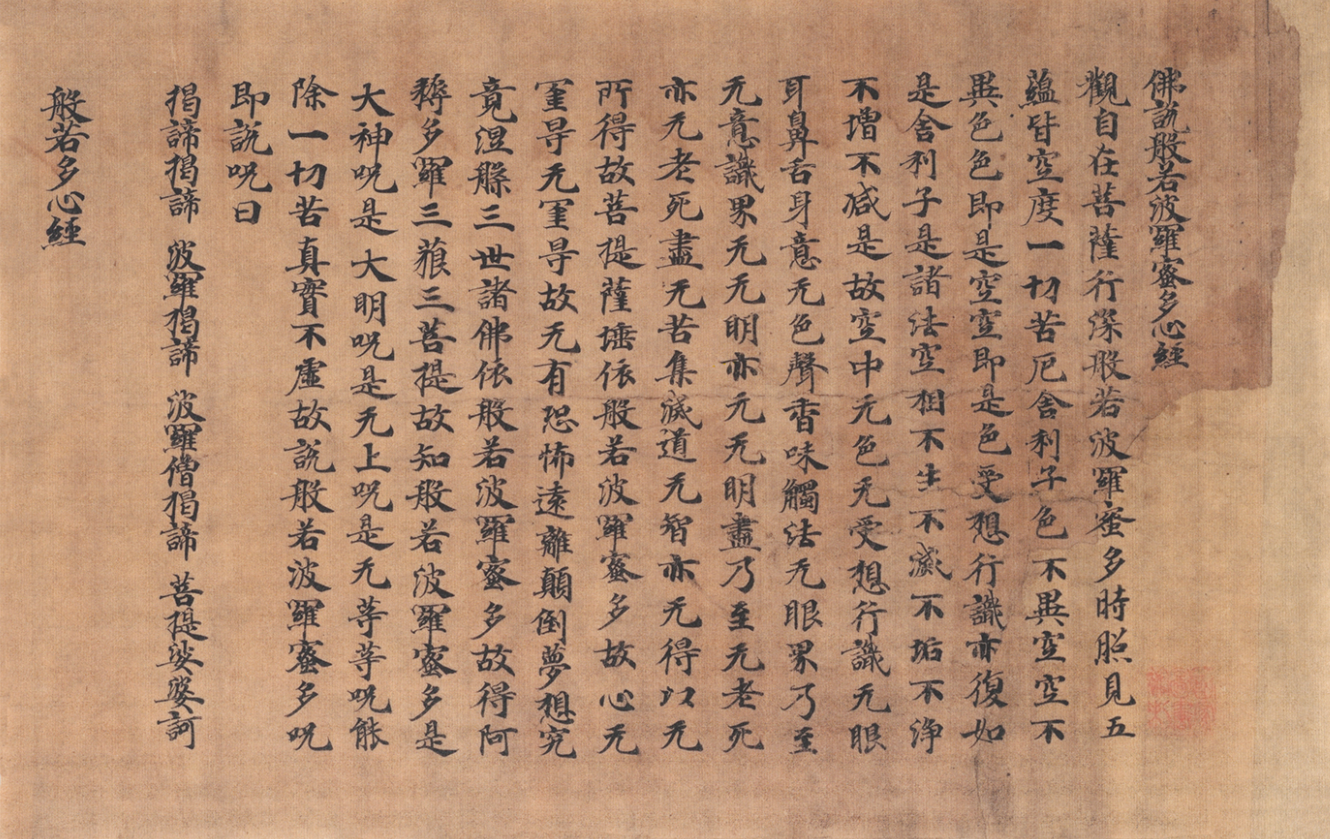 佛説般若波羅蜜多心經
觀自在菩薩行深般若波羅蜜多時照見五
蘊皆空度一切苦厄舍利子色不異空空不
異色色即是空空即是色受想行識亦復如
是舍利子是諸法空相不生不滅不垢不淨
不增不減是故空中无色无受想行識无眼
耳鼻舌身意无色聲香味觸法无眼界乃至
无意識界无无明亦无无明盡乃至无老死
亦无老死盡无苦集滅道无智亦无得以无
所得故菩提薩埵依般若波羅蜜多故心无
罣㝵无罣㝵故无有恐怖遠離顛倒夢想究
竟涅槃三世諸佛依般若波羅蜜多故得阿
耨多羅三藐三菩提故知般若波羅蜜多是
大神呪是大明呪是无上呪是无等等呪能
除一切苦真實不虛故説般若波羅蜜多呪
即説呪曰
揭諦揭諦 波羅揭諦 波羅僧揭諦 菩提娑婆訶
般若多心經